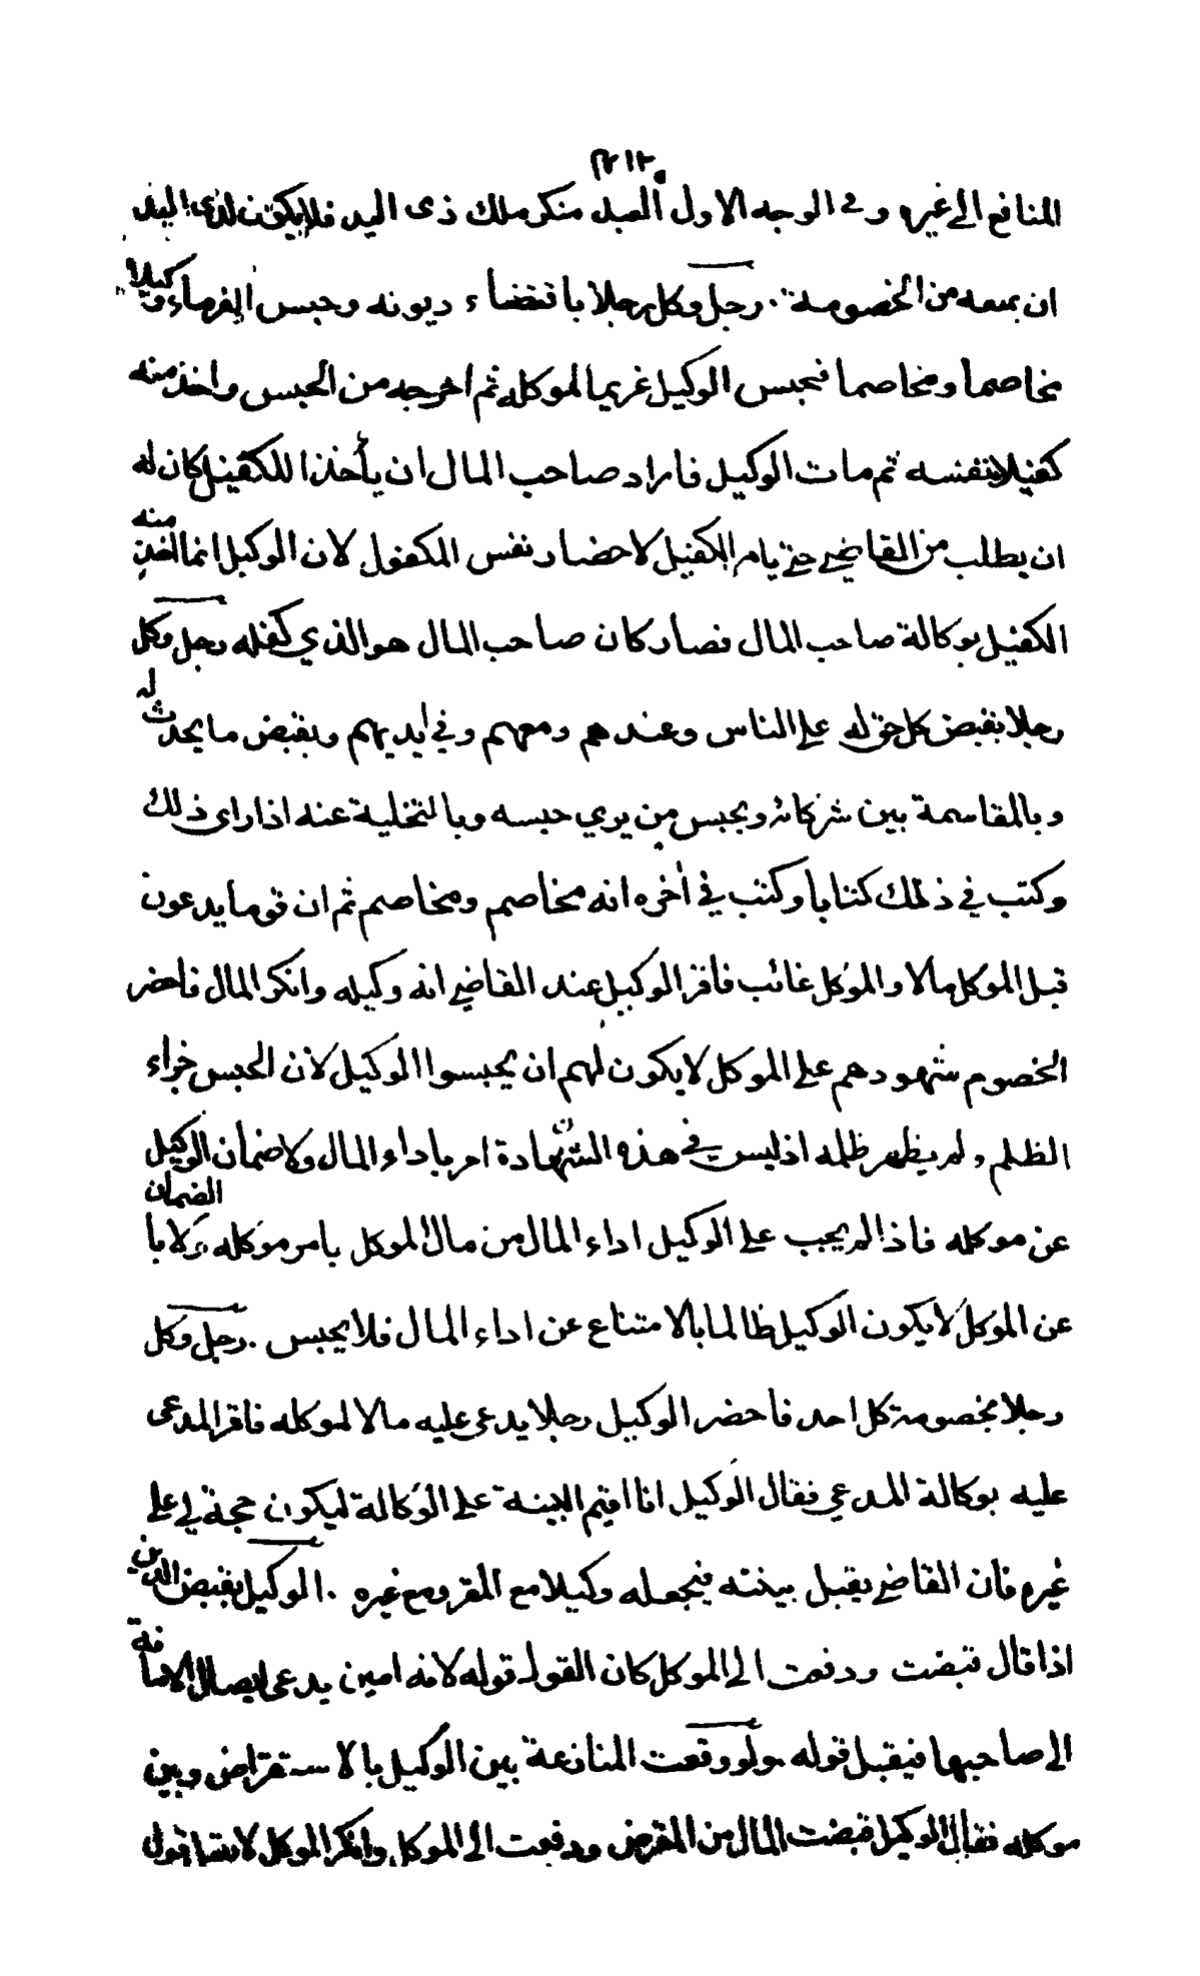 المنافع الى غيره وفى الوجه الاول العبد منكر ملك ذى اليد فلا يكون لذى اليد
ان يمنعه من الخصومة . رجل وكل رجلا باقتضاء ديونه وحبس الغرماء وكيلا
مخاصما ومخاصما فحبس الوكيل غريما لموكله ثم اخرجه من الحبس واخذ منه
كفيلا بنفسه ثم مات الوكيل فاراد صاحب المال ان يأخذ الكفيل كان له
ان يطلب من القاضي حتى يامر الكفيل لاحضار نفس المكفول لان الوكيل انما اخذ منه
الكفيل بوكالة صاحب المال فصار كان صاحب المال هو الذي كفله رجل وكل
رجلا بقبض كل حق له على الناس وعندهم ومعهم وفي ايديهم وبقبض ما يحدث له
وبالمقاسمة بين شركائه وبحبس من يري حبسه وبالتخلية عنه اذا راى ذلك
وكتب في ذلك كتابا وكتب في أخره انه مخاصم ومخاصم ثم ان قوما يدعون
قبل الموكل مالا والموكل غائب فاقر الوكيل عند القاضي انه وكيله وانكر المال فاحضر
الخصوم شهودهم على الموكل لا يكون لهم ان يحبسوا الوكيل لان الحبس جزاء
الظلم ولم يظهر ظلمه اذ ليس في هذه الشهادة امر باداء المال ولا ضمان الوكيل
عن موكله فاذا لم يجب على الوكيل اداء المال من مال الموكل بامر موكله ولا با الضمان
عن الموكل لا يكون الوكيل ظالما بالامتناع عن اداء المال فلا يحبس . رجل وكل
رجلا بخصومة كل احد فاحضر الوكيل رجلا يدعى عليه مالا لموكله فاقر المدعى
عليه بوكالة المدعي فقال الوكيل انا اقيم البينة على الوكالة ليكون حجة لي على
غيره فان القاضي يقبل بينته فيجعله وكيلا مع المقر ومع غيره . الوكيل بقبض الدين
اذا قال قبضت ودفعت الى الموكل كان القول قوله لانه امين يدعى ايصال الامانة
الى صاحبها فيقبل قوله ولو وقعت المنازعة بين الوكيل بالاستقراض وبين
موكله فقال الوكيل قبضت المال من المقرض ودفعت الى الموكل وانكر الموكل لا